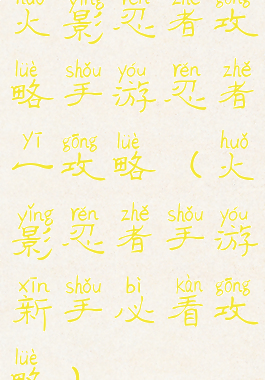 huǒ yǐng rěn zhě gōng
火 影 忍 者 攻
lüè shǒu yóu rěn zhě
略 手 游 忍 者
yī gōng lüè huǒ
一 攻 略 （ 火
yǐng rěn zhě shǒu yóu
影 忍 者 手 游
xīn shǒu bì kàn gōng
新 手 必 看 攻
lüè
略 ）